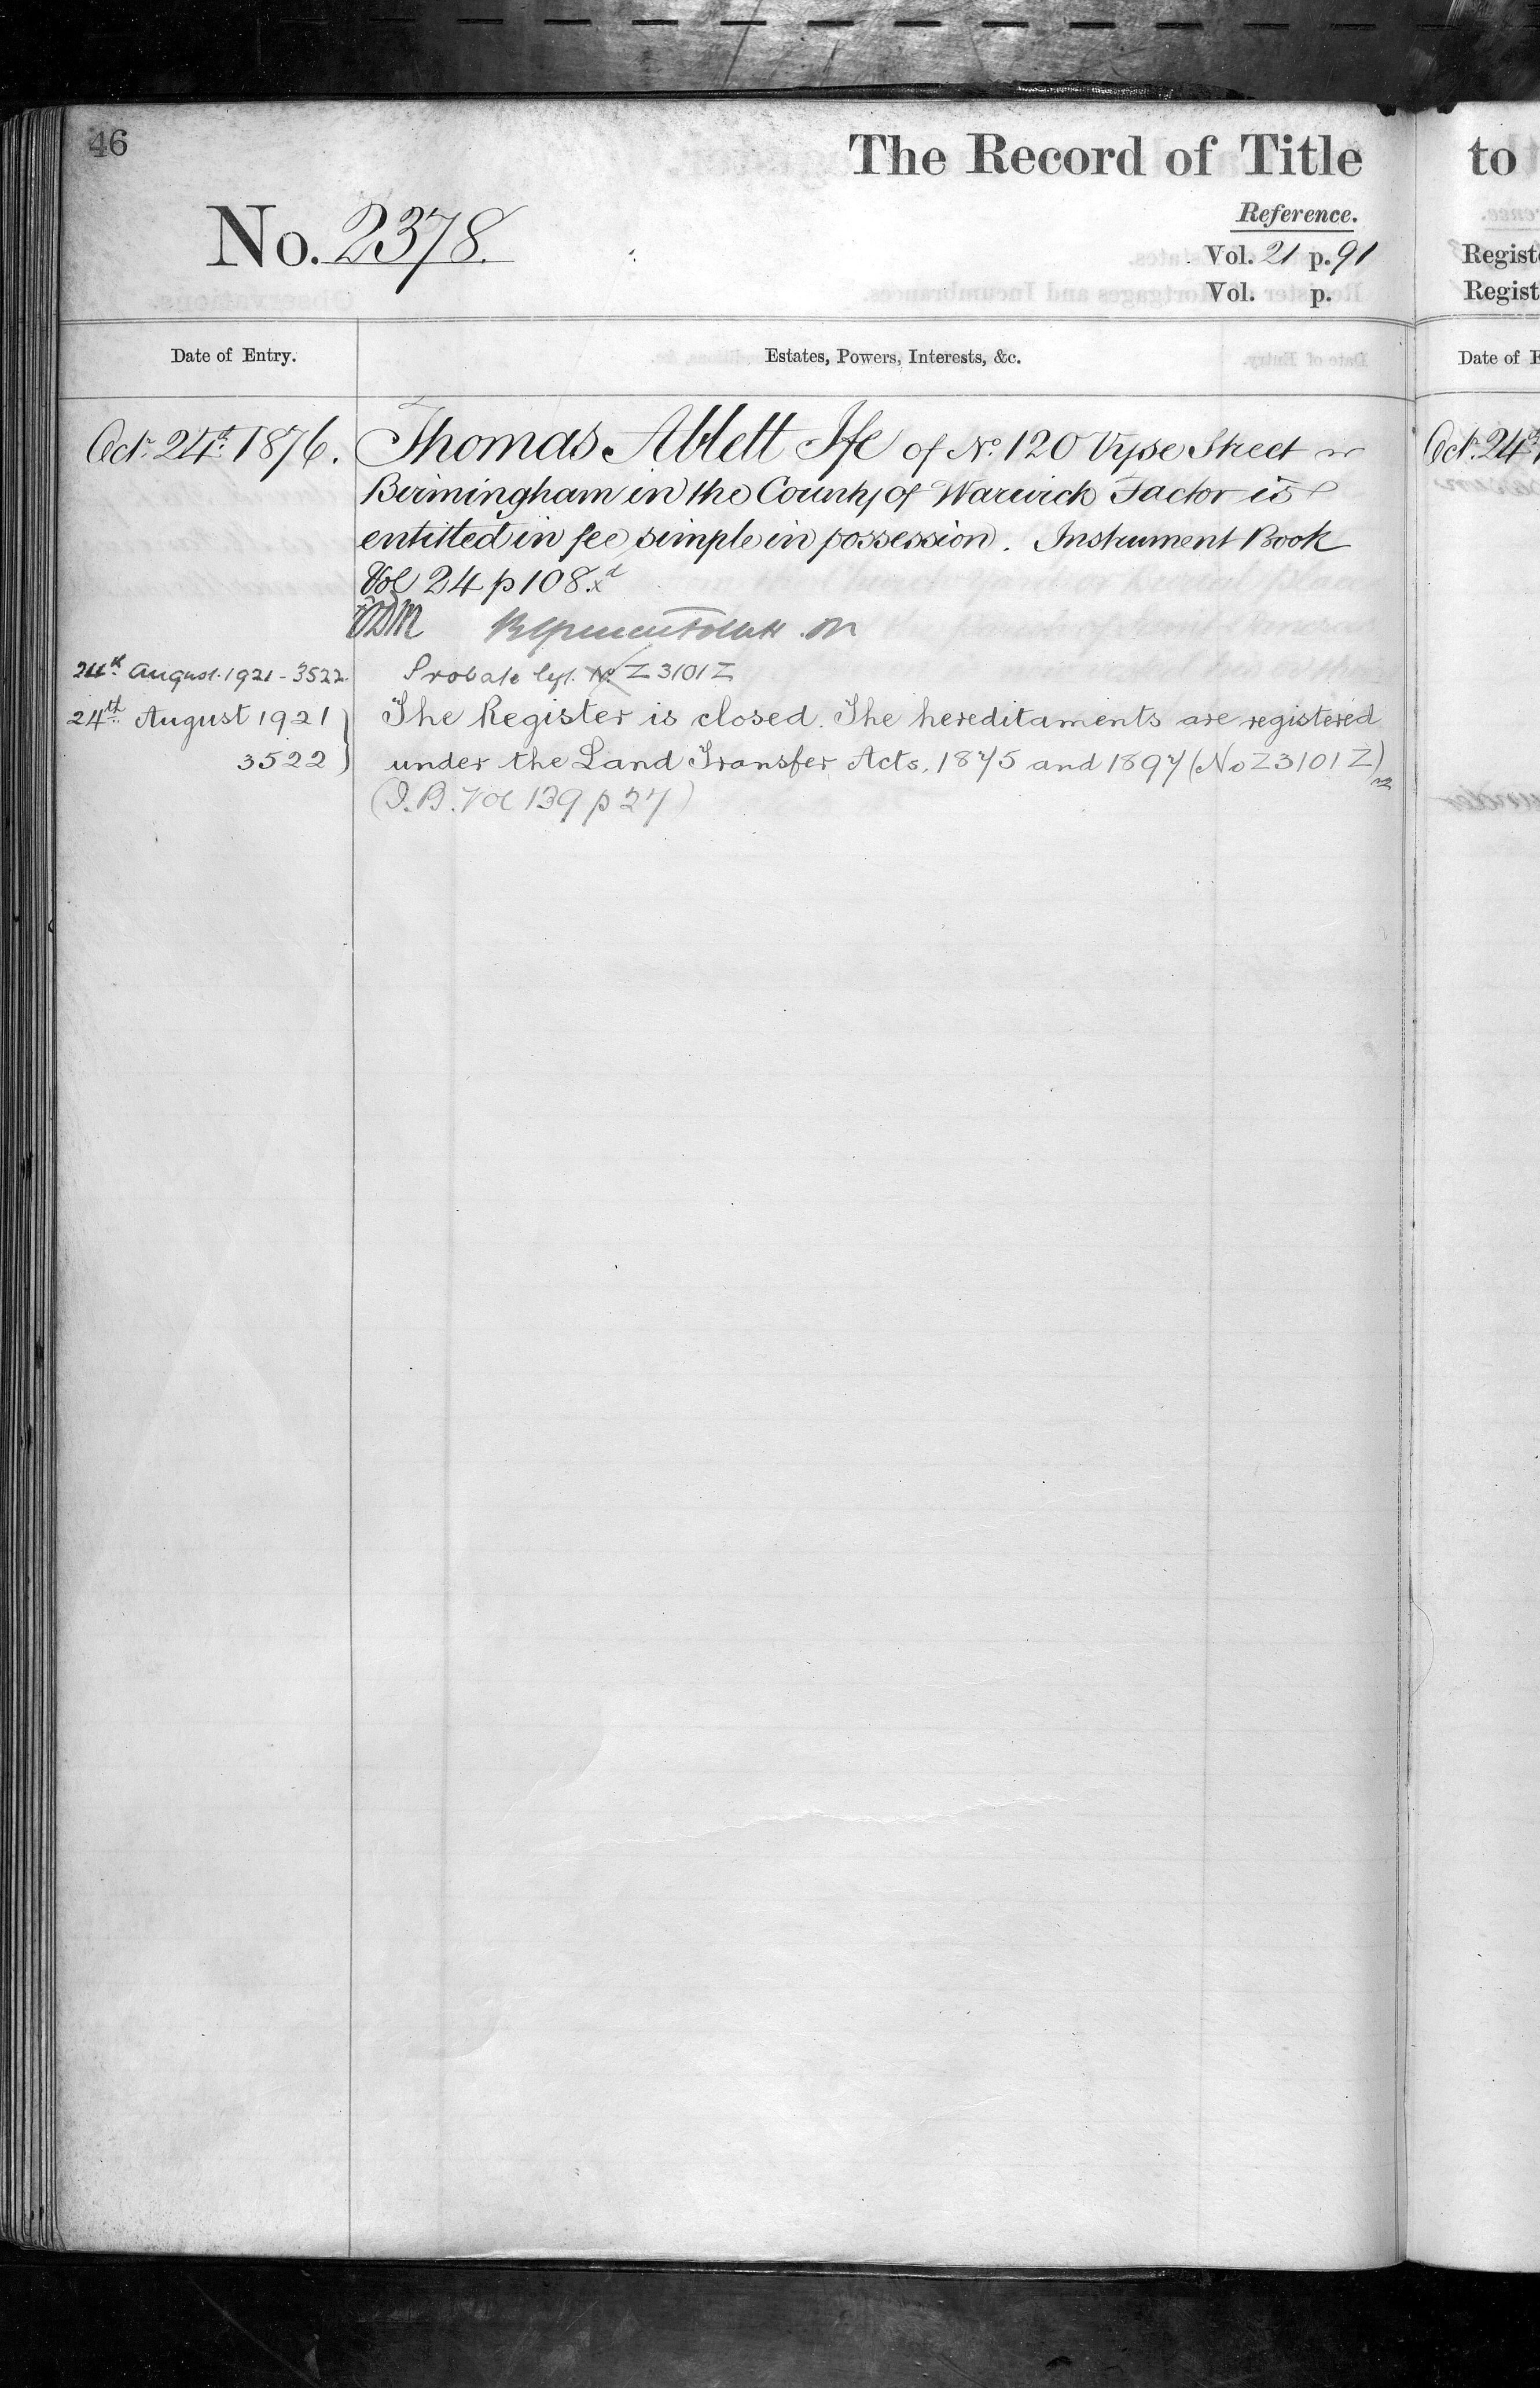 46
The Record of Title
to
No. 2378.
Reference.
Vol. 21 p. 91
Regist
Vol. p.
Regist
Date of Entry.
Estates, Powers, Interests, &c.
Date of E
Oct. 24th 1876.
Thomas Ablett Ife of No. 120 Vyse Street
Oct. 24th
Birmingham in the County of Warwick Factor is
entitled in fee simple in possession. Instrument Book
Vol 24 p 108.
24th August 1921 - 3522
Probate No Z3101Z
24th August 1921
The Register is closed. The hereditaments are registered
3522
under the Land Transfer Acts, 1875 and 1897 (No Z3101Z)
(I.B. Vol 139 p 27)